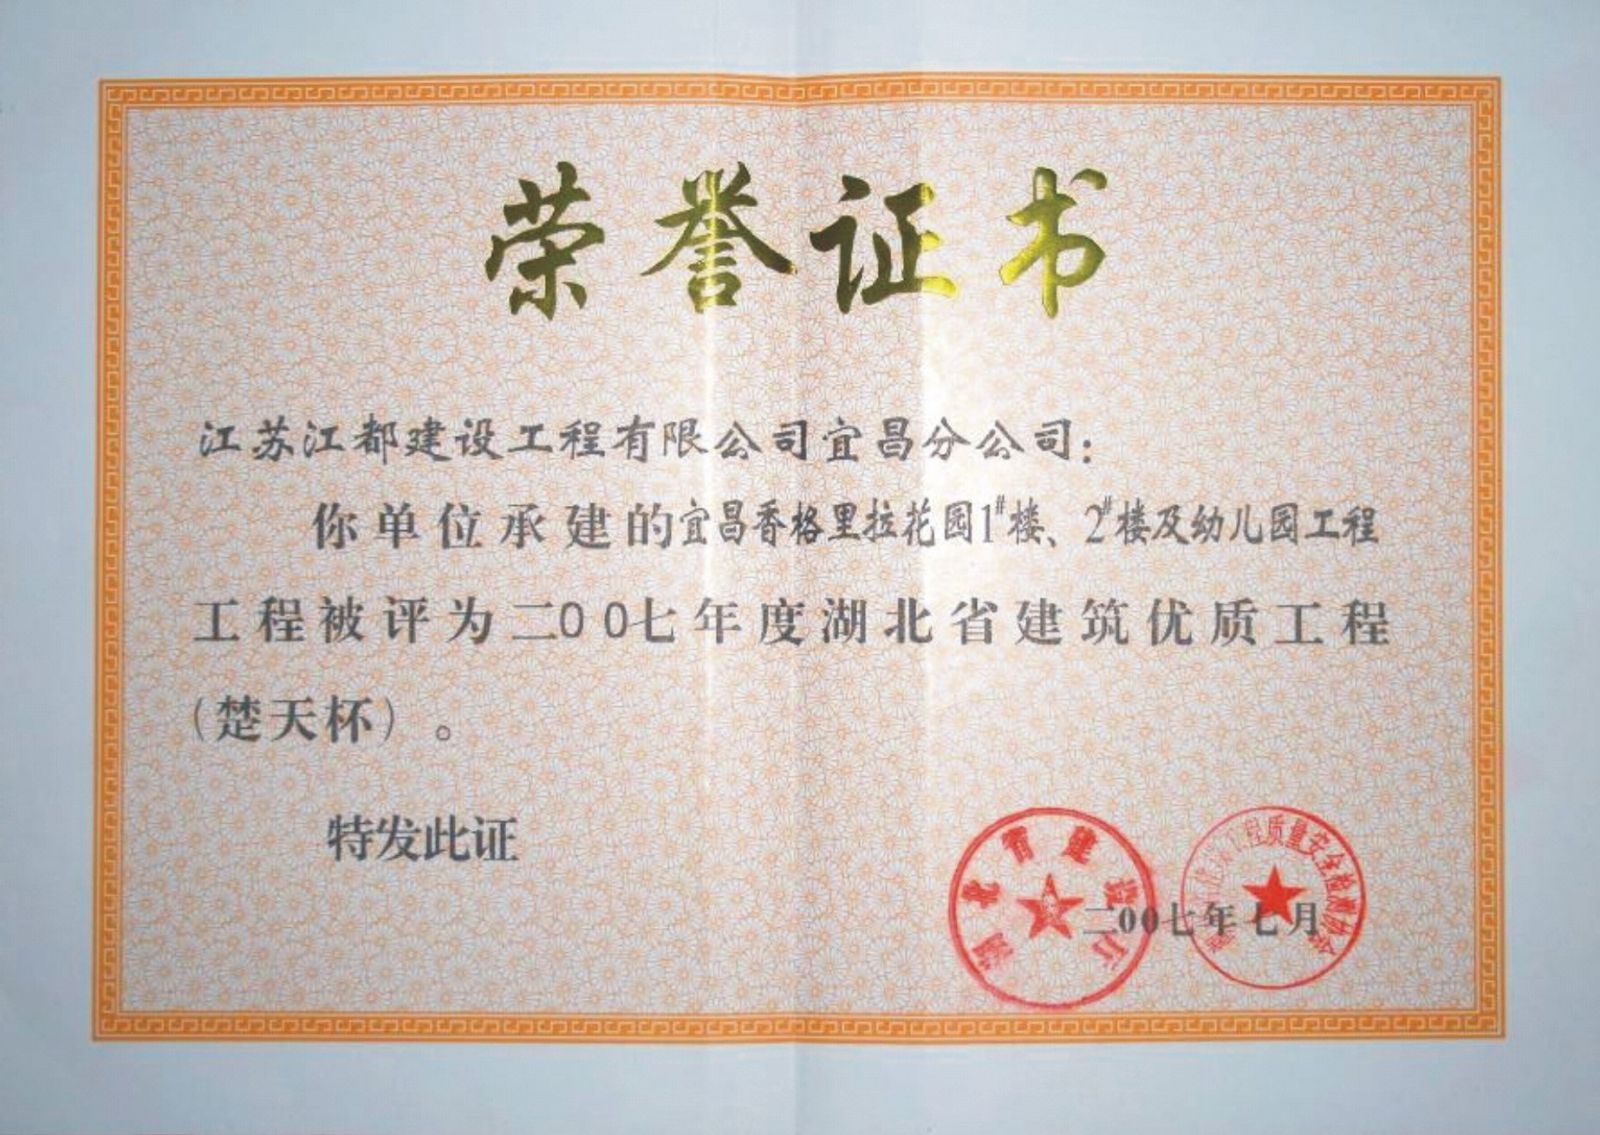 荣誉证书
江苏江都建设工程有限公司宜昌分公司：
你单位承建的宜昌香格里拉花园1#楼、2#楼及幼儿园工程
工程被评为二00七年度湖北省建筑优质工程
（楚天杯）。
特发此证
湖北省建设厅
工程质量安全检测协会
二00七年七月